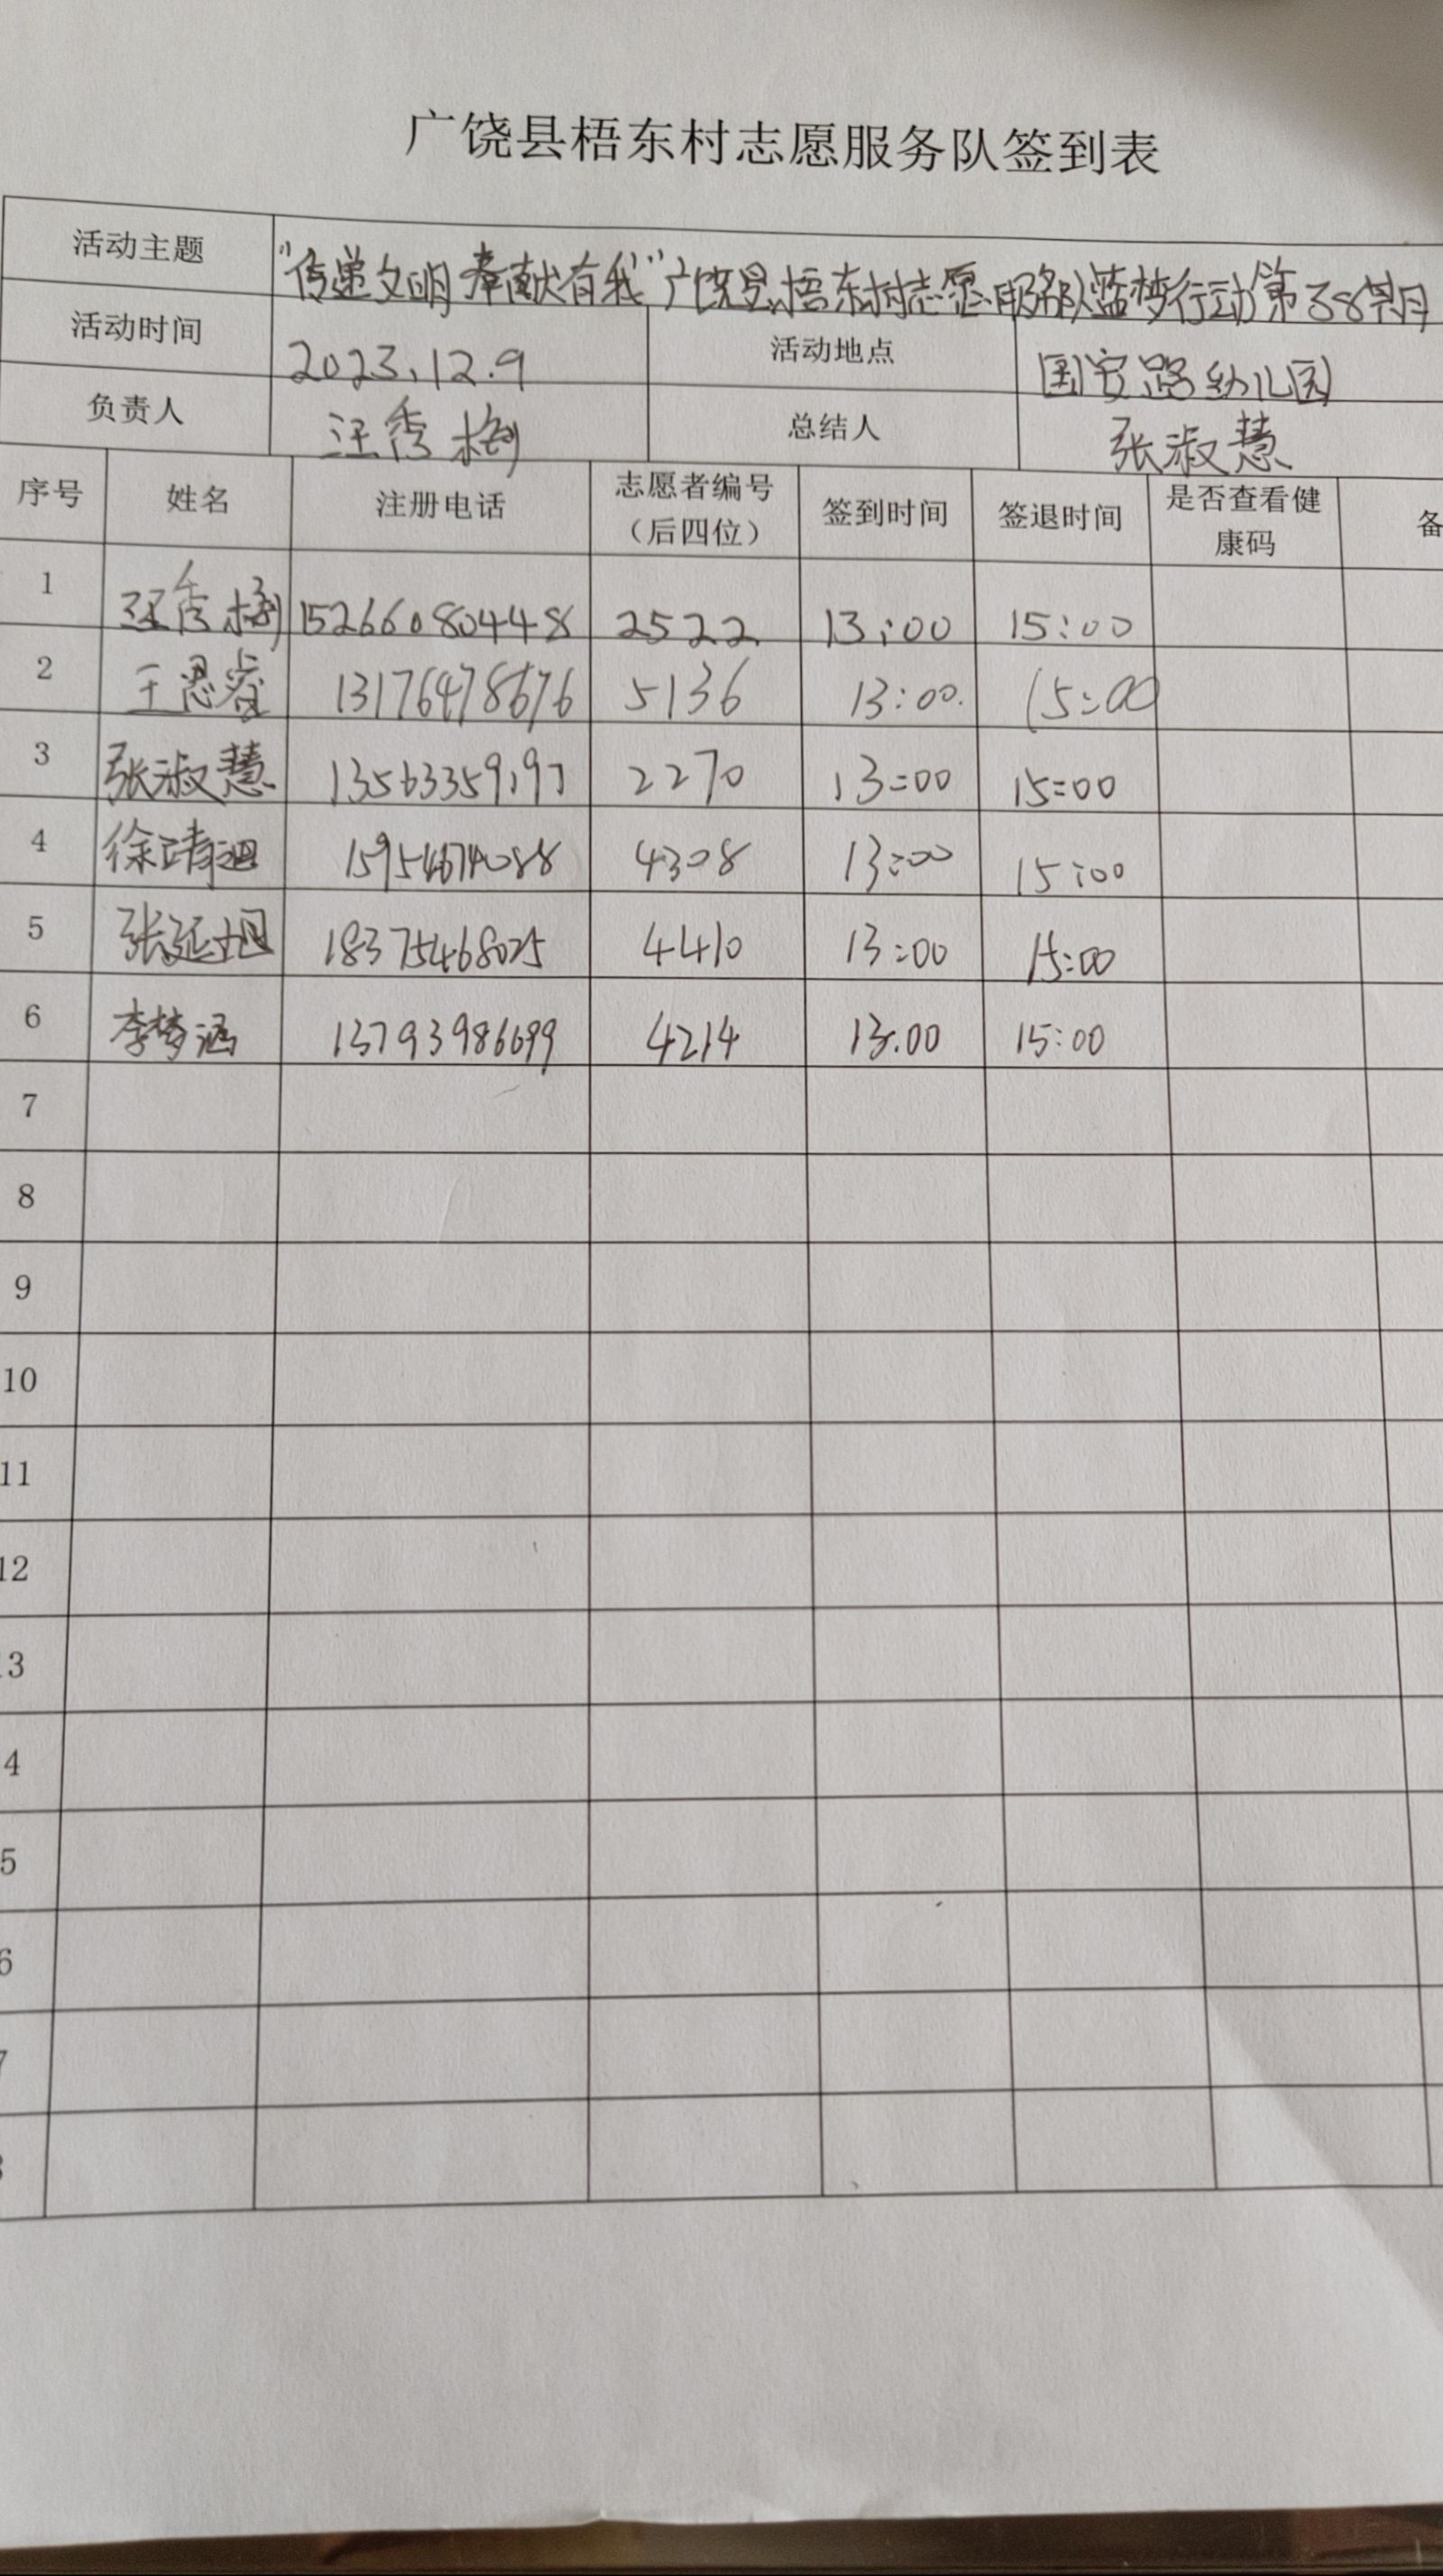 广饶县梧东村志愿服务队签到表
活动主题 “传递文明 奉献有我”广饶县梧东村志愿服务队蓝梦行动第38期
活动时间 2023.12.9 活动地点 国安路幼儿园
负责人 汪秀梅 总结人 张淑慧
序号 姓名 注册电话 志愿者编号（后四位） 签到时间 签退时间 是否查看健康码 备
1 汪秀梅 15266080448 2522 13:00 15:00
2 王思睿 13176478676 5136 13:00. 15:00
3 张淑慧 13563359197 2270 13:00 15:00
4 15954674088 4308 13:00 15:00
5 18375468025 4410 13:00 15:00
6 李梦涵 13793986699 4214 13:00 15:00
7
8
9
10
11
12
3
4
5
6
7